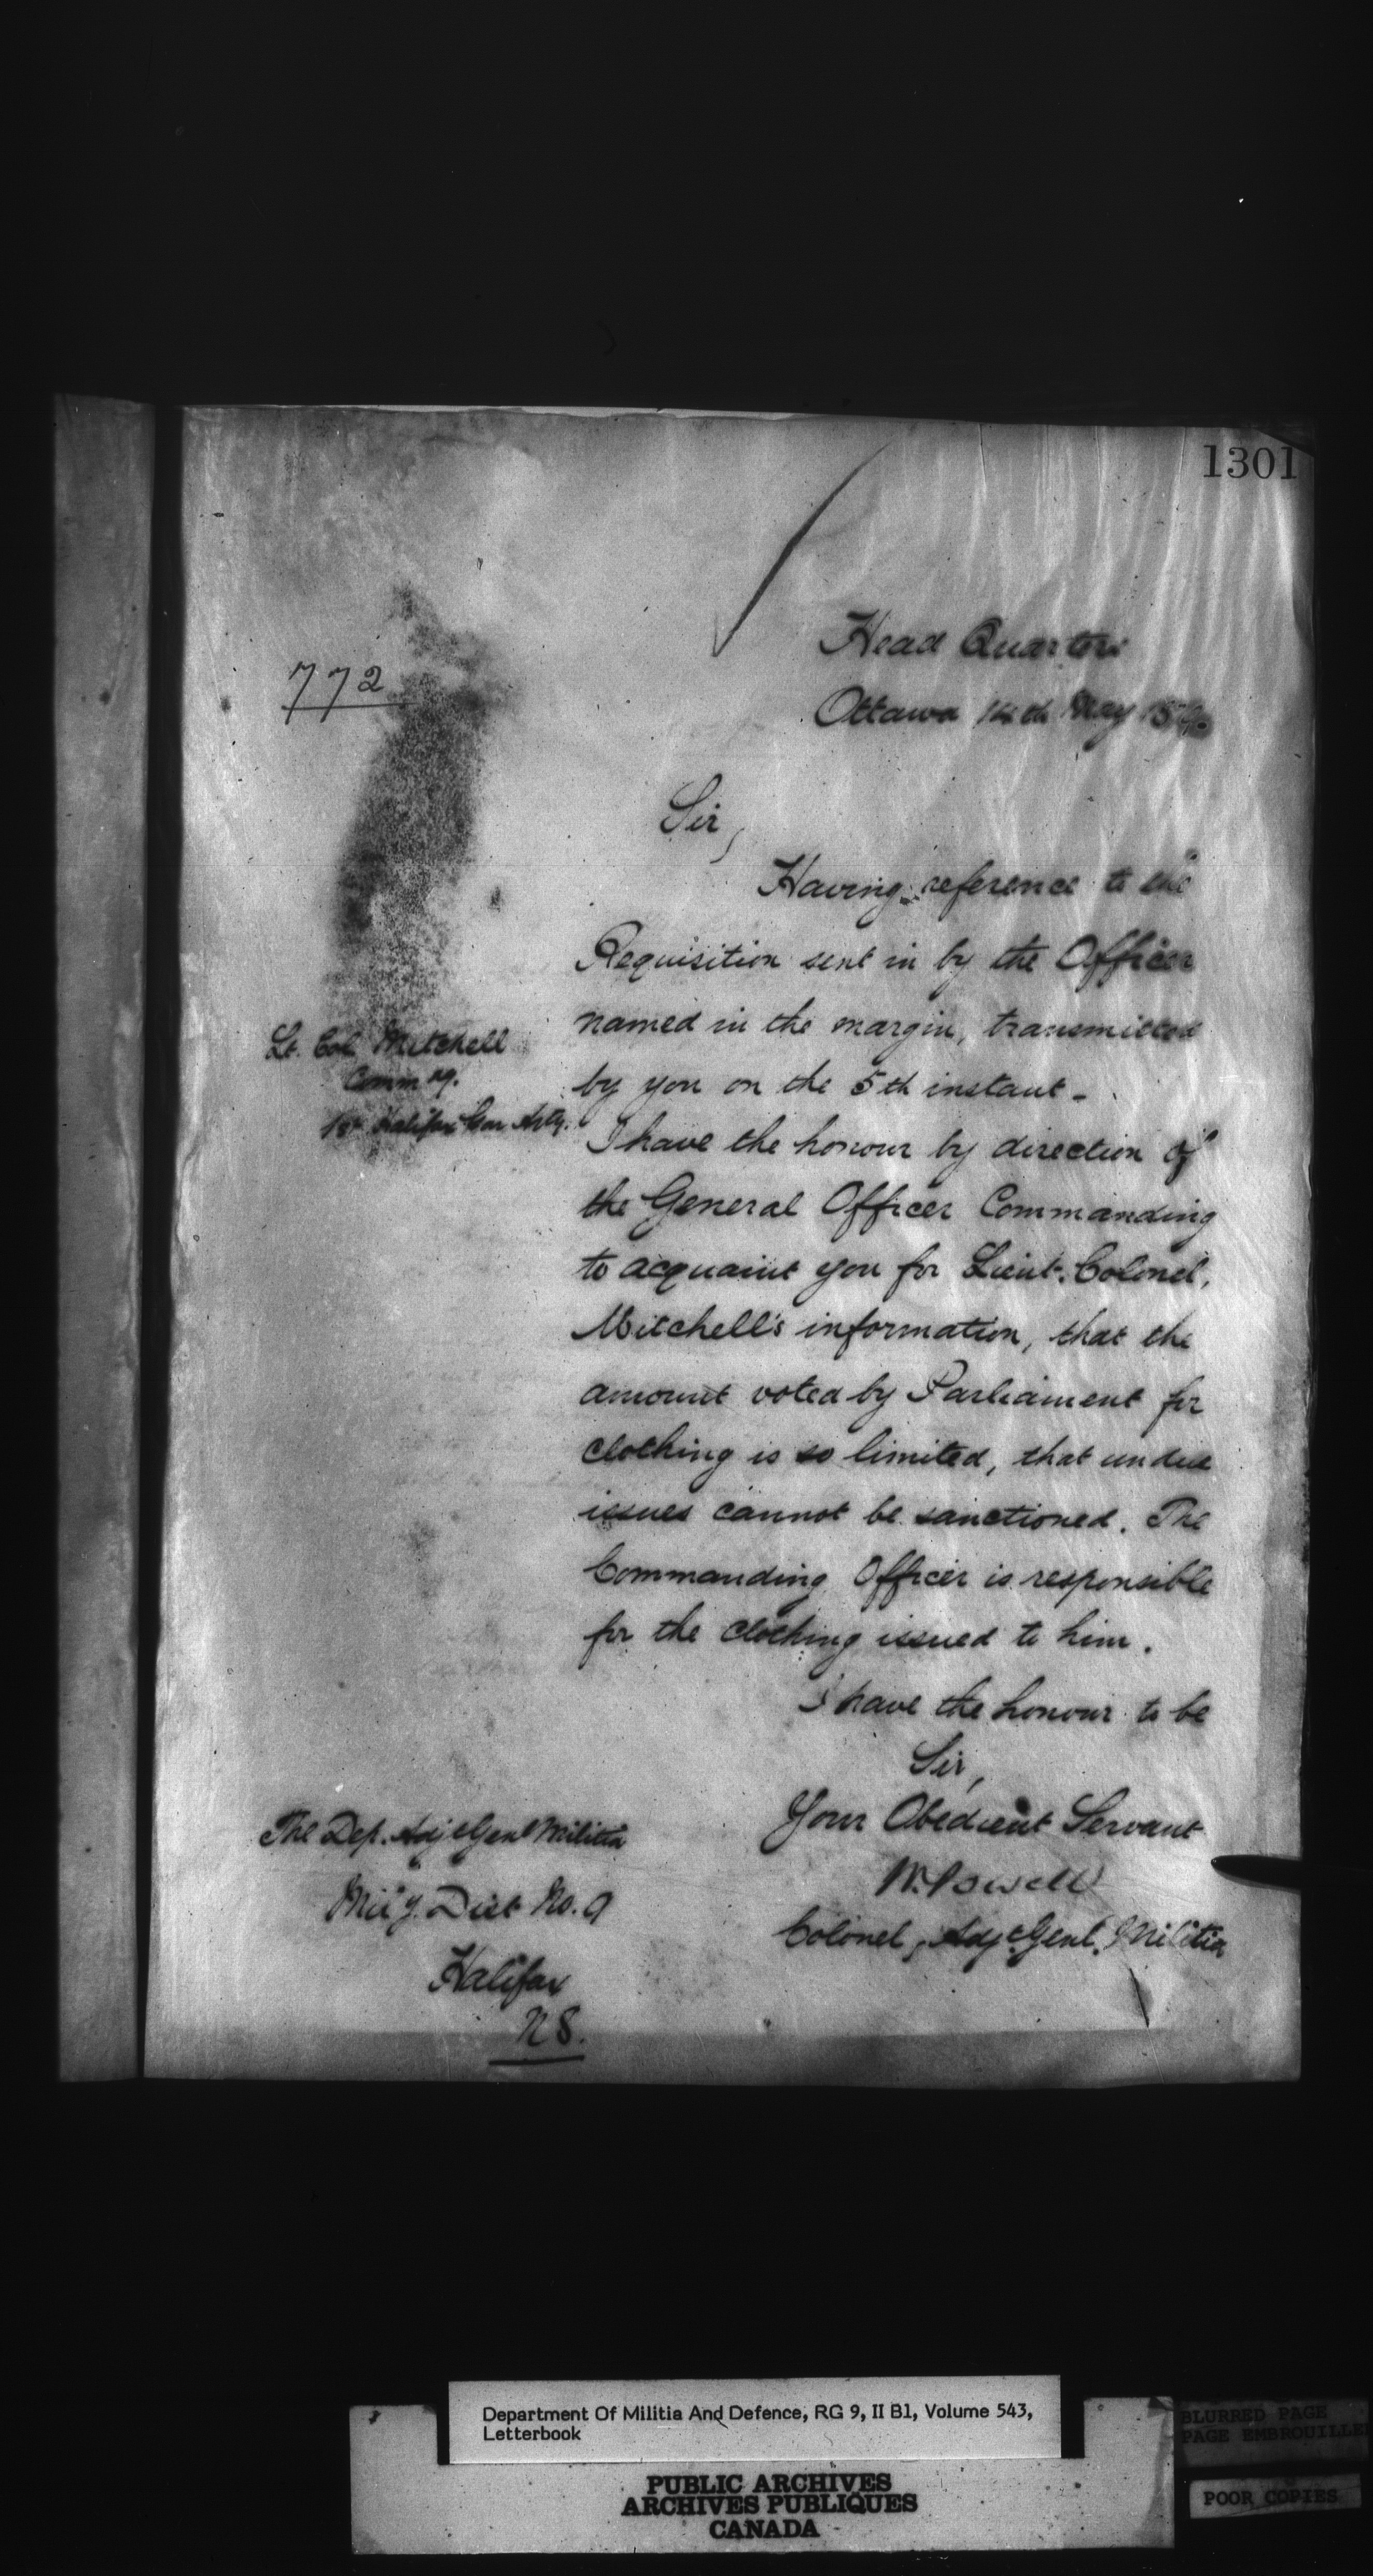 1301
772
Head Quarters
Ottawa 14th May
Sir,
Having reference to the
Requisition sent in by the Officer
named in the margin, transmitted
by you on the 5th instant -
Lt. Col Mitchell
Commg.
1st Halifax Gar Arty.
I have the honour by direction of
the General Officer Commanding
to acquaint you for Lieut. Colonel,
Mitchell's information, that the
amount voted by Parliament for
clothing is so limited, that undue
issues cannot be sanctioned. The
Commanding Officer is responsible
for the clothing issued to him.
I have the honour to be
Sir,
Your Obedient Servant
W. Powell
Colonel, Adjt Genl. Militia
The Dep. Adjt Genl Militia
Mily. Dist No. 9
Halifax
NS.
Department Of Militia And Defence, RG 9, II B1, Volume 543,
Letterbook
PUBLIC ARCHIVES
ARCHIVES PUBLIQUES
CANADA
BLURRED PAGE
PAGE EMBROUILLE
POOR COPIES